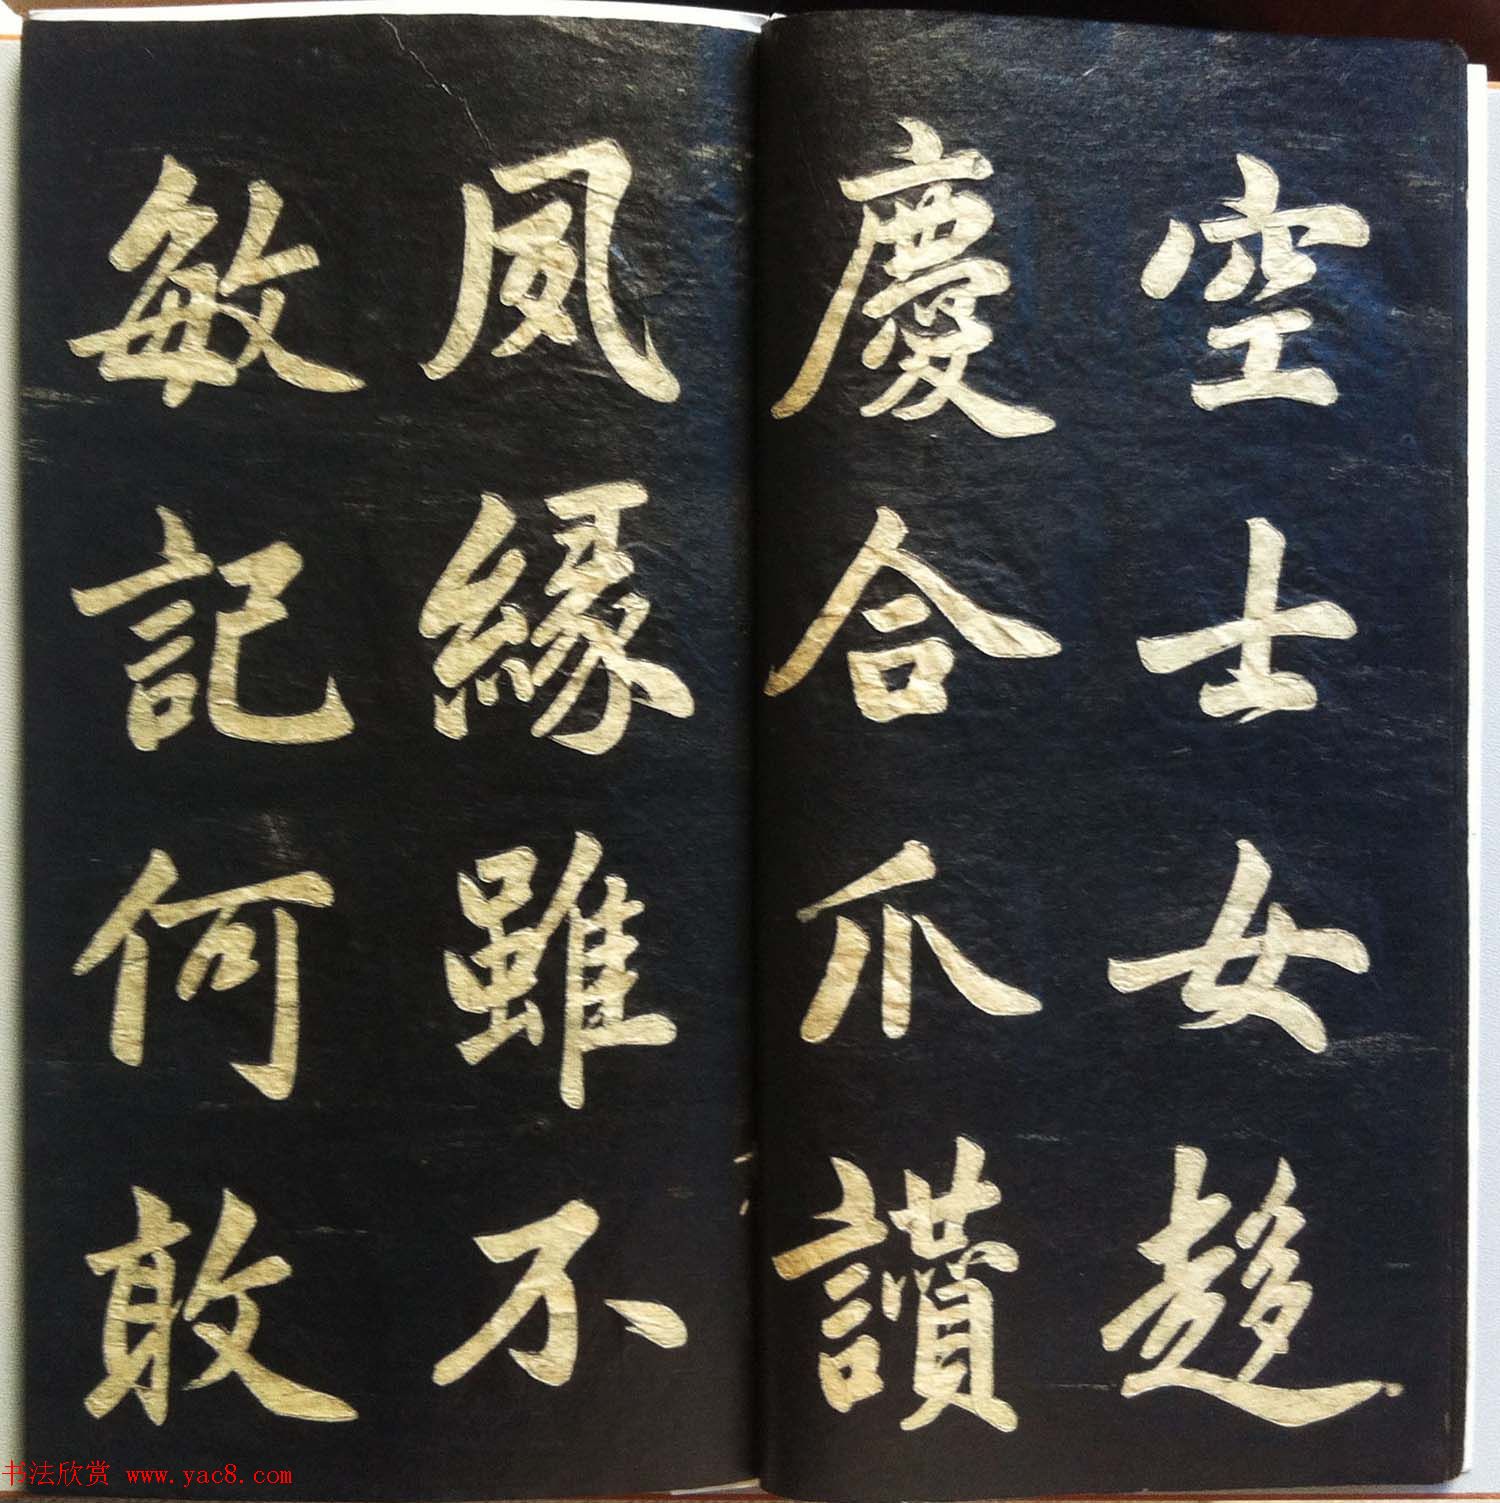 空士女趍
慶合爪讃
夙緣雖不
敏記何敢
书法欣赏 www.yac8.com